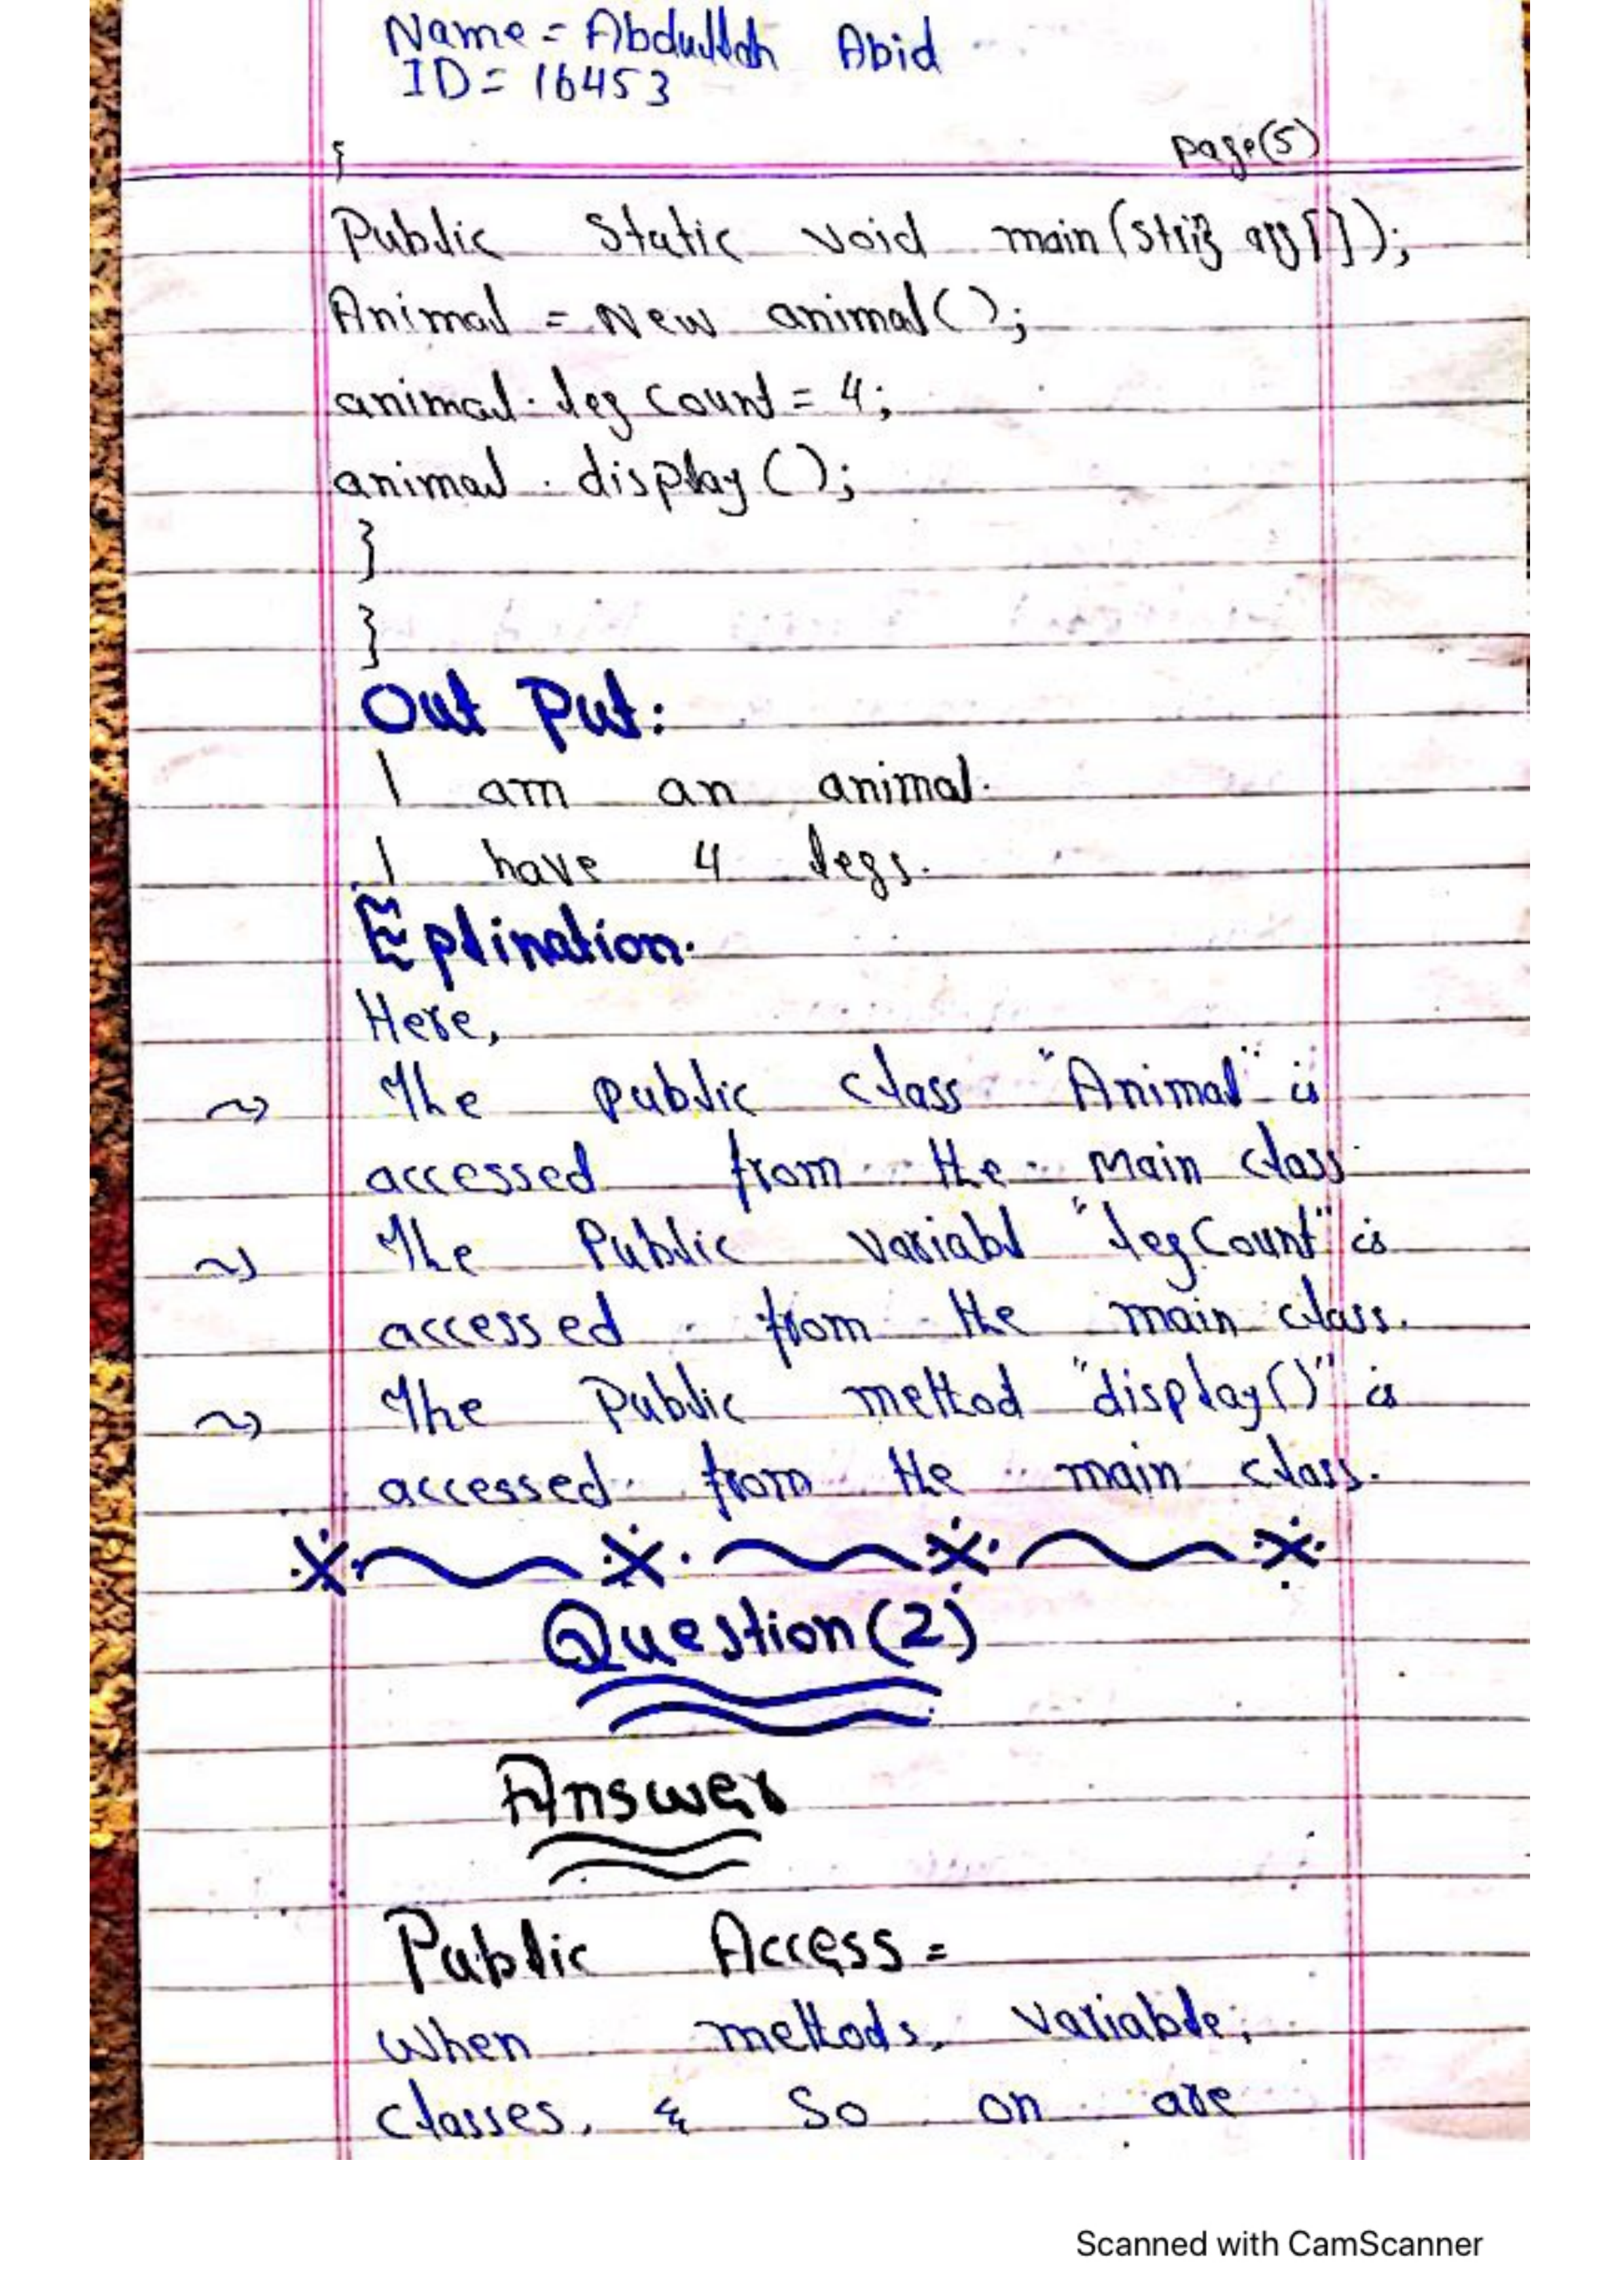 Name = Abdullah Abid
ID = 16453
page(5)
{
Public Static void main(string arg[]);
Animal = New animal();
animal. leg Count = 4;
animal. display();
}
}
Out Put:
I am an animal.
I have 4 legs.
Eplination.
Here,
The public class "Animal" is
accessed from the Main class
The Public variabl "legCount" is
accessed from the main class.
The Public method "display()" is
accessed from the main class.
Question(2)
Answer
Public Access =
When methods, variable,
classes, & So on are
Scanned with CamScanner